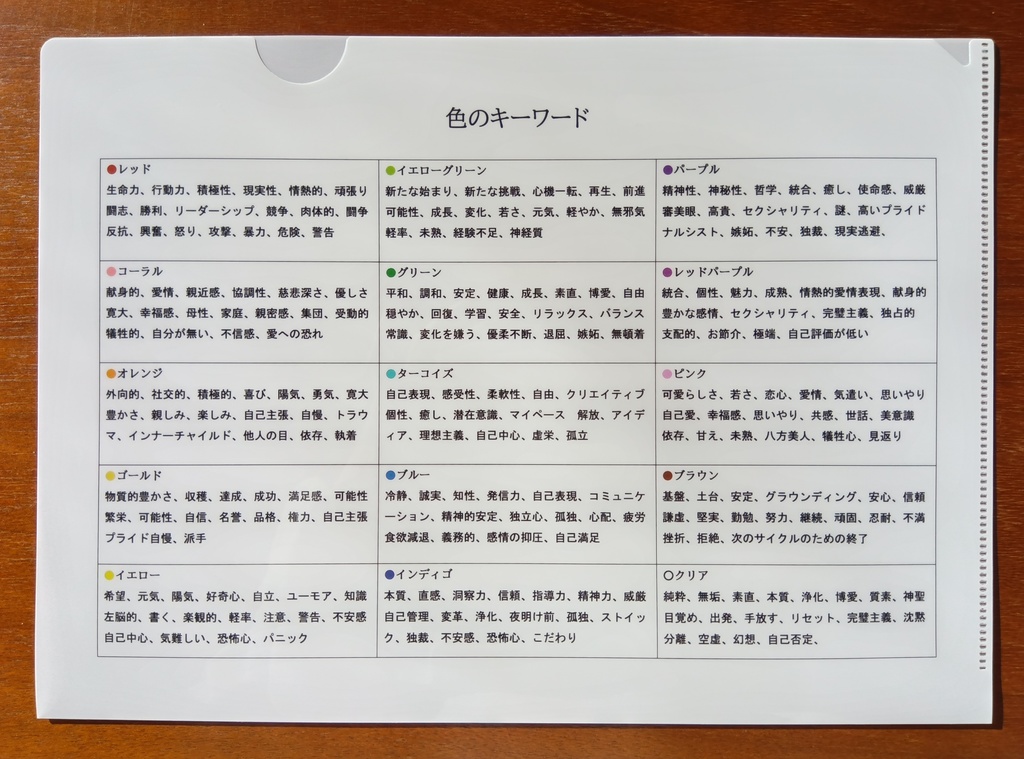 色のキーワード
●レッド
生命力、行動力、積極性、現実性、情熱的、頑張り
闘志、勝利、リーダーシップ、競争、肉体的、闘争
反抗、興奮、怒り、攻撃、暴力、危険、警告
●イエローグリーン
新たな始まり、新たな挑戦、心機一転、再生、前進
可能性、成長、変化、若さ、元気、軽やか、無邪気
軽率、未熟、経験不足、神経質
●パープル
精神性、神秘性、哲学、統合、癒し、使命感、威厳
審美眼、高貴、セクシャリティ、謎、高いプライド
ナルシスト、嫉妬、不安、独裁、現実逃避、
●コーラル
献身的、愛情、親近感、協調性、慈悲深さ、優しさ
寛大、幸福感、母性、家庭、親密感、集団、受動的
犠牲的、自分が無い、不信感、愛への恐れ
●グリーン
平和、調和、安定、健康、成長、素直、博愛、自由
穏やか、回復、学習、安全、リラックス、バランス
常識、変化を嫌う、優柔不断、退屈、嫉妬、無頓着
●レッドパープル
統合、個性、魅力、成熟、情熱的愛情表現、献身的
豊かな感情、セクシャリティ、完璧主義、独占的
支配的、お節介、極端、自己評価が低い
●オレンジ
外向的、社交的、積極的、喜び、陽気、勇気、寛大
豊かさ、親しみ、楽しみ、自己主張、自慢、トラウ
マ、インナーチャイルド、他人の目、依存、執着
●ターコイズ
自己表現、感受性、柔軟性、自由、クリエイティブ
個性、癒し、潜在意識、マイペース 解放、アイデ
ィア、理想主義、自己中心、虚栄、孤立
●ピンク
可愛らしさ、若さ、恋心、愛情、気遣い、思いやり
自己愛、幸福感、思いやり、共感、世話、美意識
依存、甘え、未熟、八方美人、犠牲心、見返り
●ゴールド
物質的豊かさ、収穫、達成、成功、満足感、可能性
繁栄、可能性、自信、名誉、品格、権力、自己主張
プライド自慢、派手
●ブルー
冷静、誠実、知性、発信力、自己表現、コミュニケ
ーション、精神的安定、独立心、孤独、心配、疲労
食欲減退、義務的、感情の抑圧、自己満足
●ブラウン
基盤、土台、安定、グラウンディング、安心、信頼
謙虚、堅実、勤勉、努力、継続、頑固、忍耐、不満
挫折、拒絶、次のサイクルのための終了
●イエロー
希望、元気、陽気、好奇心、自立、ユーモア、知識
左脳的、書く、楽観的、軽率、注意、警告、不安感
自己中心、気難しい、恐怖心、パニック
●インディゴ
本質、直感、洞察力、信頼、指導力、精神力、威厳
自己管理、変革、浄化、夜明け前、孤独、ストイッ
ク、独裁、不安感、恐怖心、こだわり
○クリア
純粋、無垢、素直、本質、浄化、博愛、質素、神聖
目覚め、出発、手放す、リセット、完璧主義、沈黙
分離、空虚、幻想、自己否定、